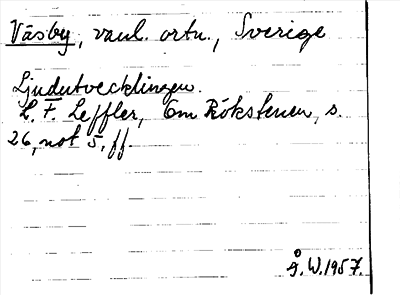 Väsby, vanl. ortn., Sverige
Ljudutvecklingen.
L. F. Leffler, Om Rökstenen, s.
26, not 5, ff.
Å. W. 1957.